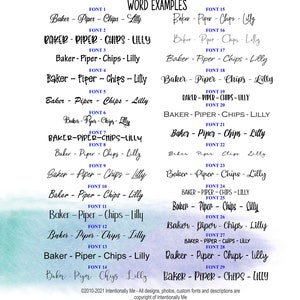 WORD EXAMPLES
FONT 1
Baker - Piper - Chips - Lilly
FONT 2
BAKER - PIPER - CHIPS - LILLY
FONT 3
Baker - Piper - Chips - Lilly
FONT 4
Baker - Piper - Chips - Lilly
FONT 5
Baker - Piper - Chips - Lilly
FONT 6
Baker - Piper - Chips - Lilly
FONT 7
BAKER-PIPER-CHIPS-LILLY
FONT 8
Baker - Piper - Chips - Lilly
FONT 9
Baker - Piper - Chips - Lilly
FONT 10
Baker - Piper - Chips - Lilly
FONT 11
Baker - Piper - Chips - Lilly
FONT 12
Baker - Piper - Chips - Lilly
FONT 13
Baker - Piper - Chips - Lilly
FONT 14
Baker - Piper - Chips - Lilly
FONT 15
Baker - Piper - Chips - Lilly
FONT 16
Baker - Piper - Chips - Lilly
FONT 17
Baker - Piper - Chips - Lilly
FONT 18
Baker - Piper - Chips - Lilly
FONT 19
BAKER - PIPER - CHIPS - LILLY
FONT 20
BAKER - PIPER - CHIPS - LILLY
FONT 21
Baker - Piper - Chips - Lilly
FONT 22
Baker - Piper - Chips - Lilly
FONT 23
Baker - Piper - Chips - Lilly
FONT 24
BAKER - PIPER - CHIPS - LILLY
FONT 25
Baker - Piper - Chips - Lilly
FONT 26
Baker - Piper - Chips - Lilly
FONT 27
BAKER - PIPER - CHIPS - LILLY
FONT 28
Baker - Piper - Chips - Lilly
FONT 29
Baker - Piper - Chips - Lilly
©2010-2021 Intentionally Me - All designs, photos, custom fonts and descriptions are
copyright of Intentionally Me